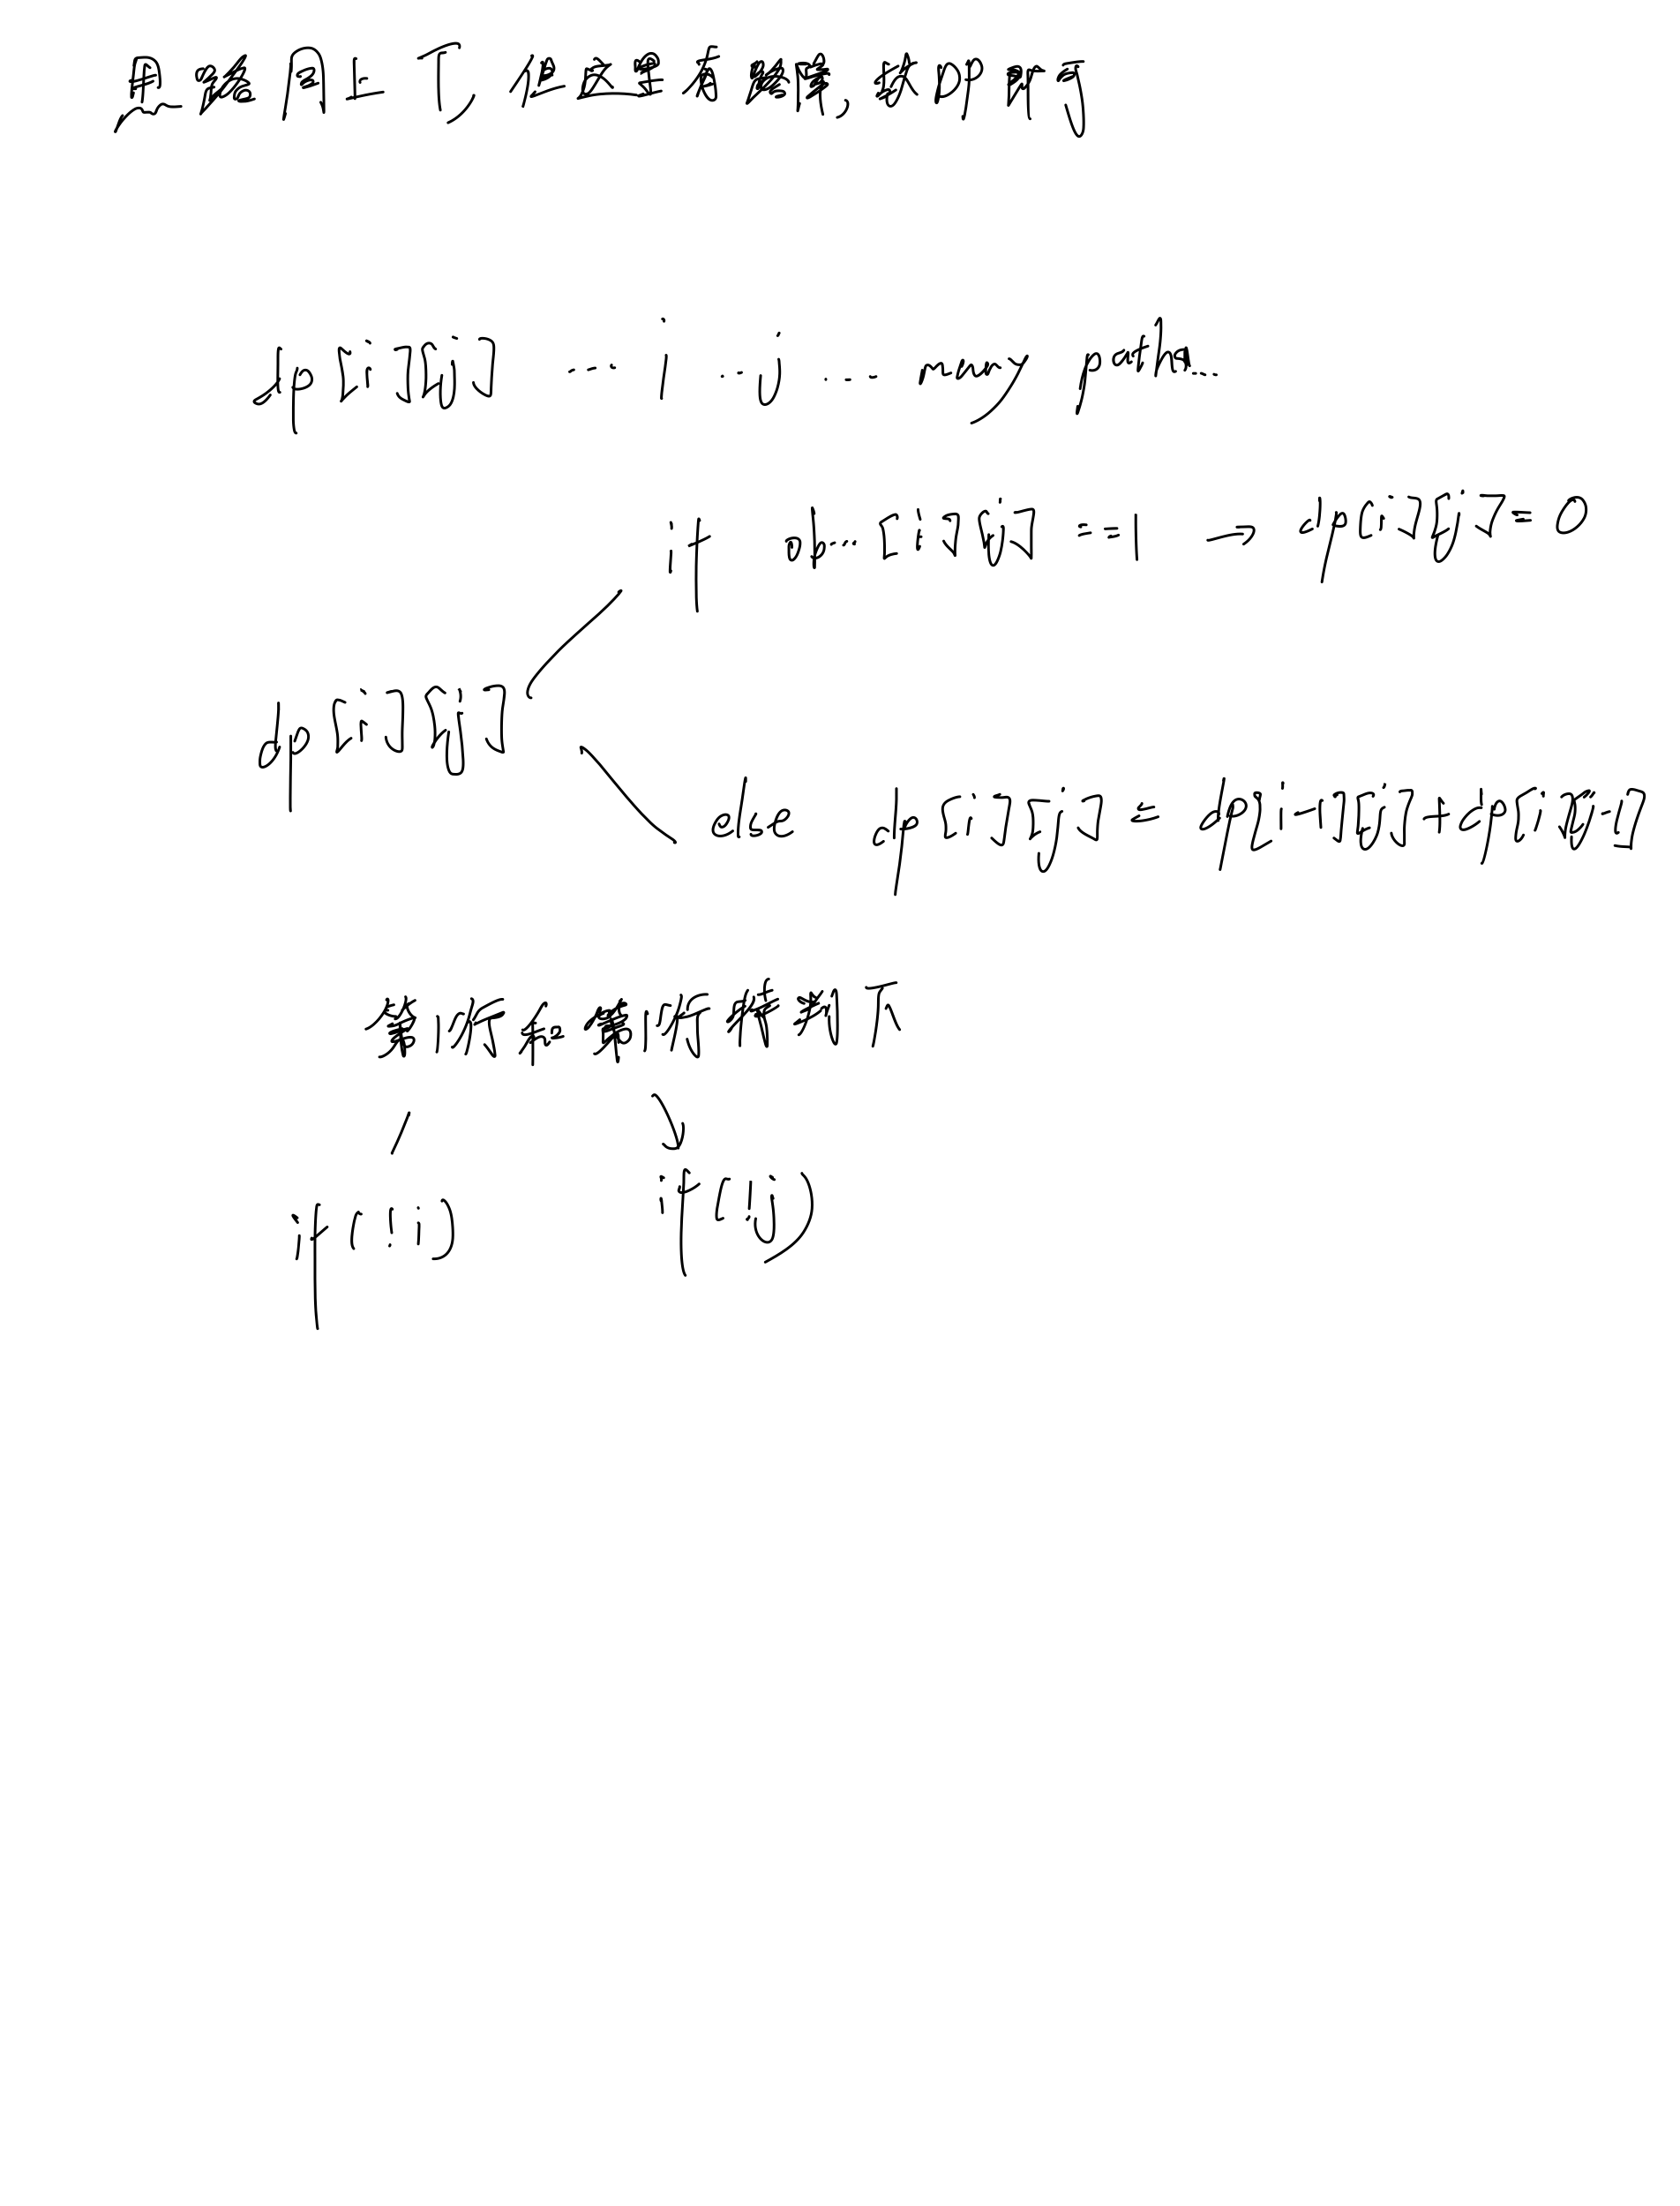 思路同上下, 但这里有障碍, 放即可
dp[i][j] ... i .. j ... many path...
if ob..[i][j] ==1 → dp[i][j]=0
dp[i][j]
else dp[i][j] = dp[i-1][j]+dp[i][j-1]
第1行和第1行特判下
if(!i) if(!j)